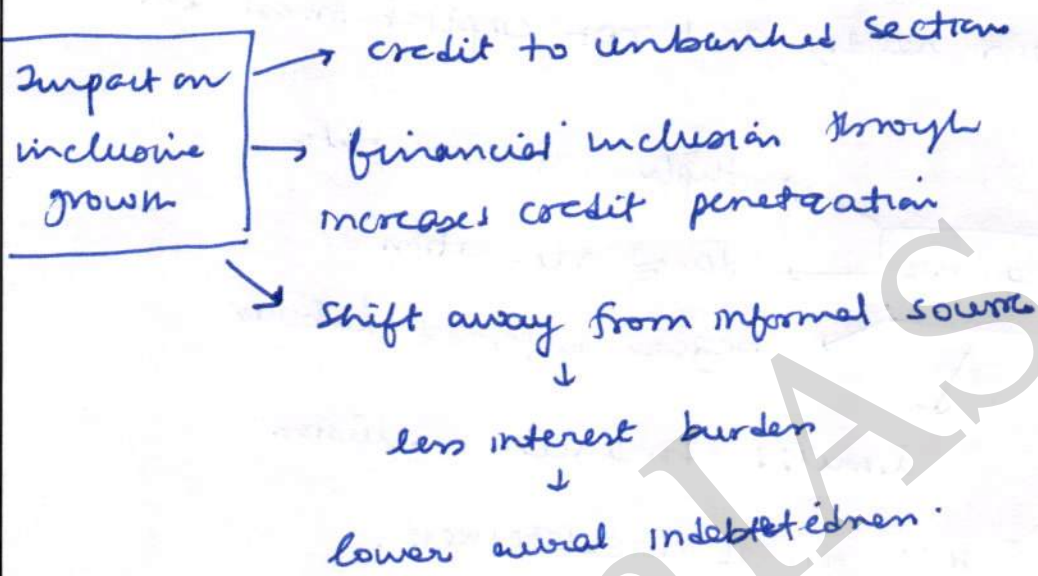 Impact on
inclusive
growth
→ credit to unbanked section
→ financial inclusion through
increases credit penetration
→ shift away from informal source
↓
less interest burden
↓
lower rural indebtedness.
IAS